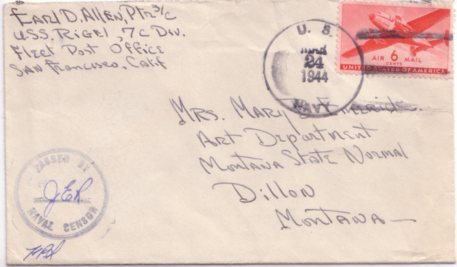 Earl D. Allen, Ptr 3/c
U.S.S. Rigel, 7C Div.
Fleet Post Office
San Francisco, Calif
U. S.
24
1944
NAVY
AIR 6 MAIL
CENTS
UNITED STATES OF AMERICA
Mrs. Mary
Art Department
Montana State Normal
Dillon
Montana
PASSED BY
NAVAL CENSOR